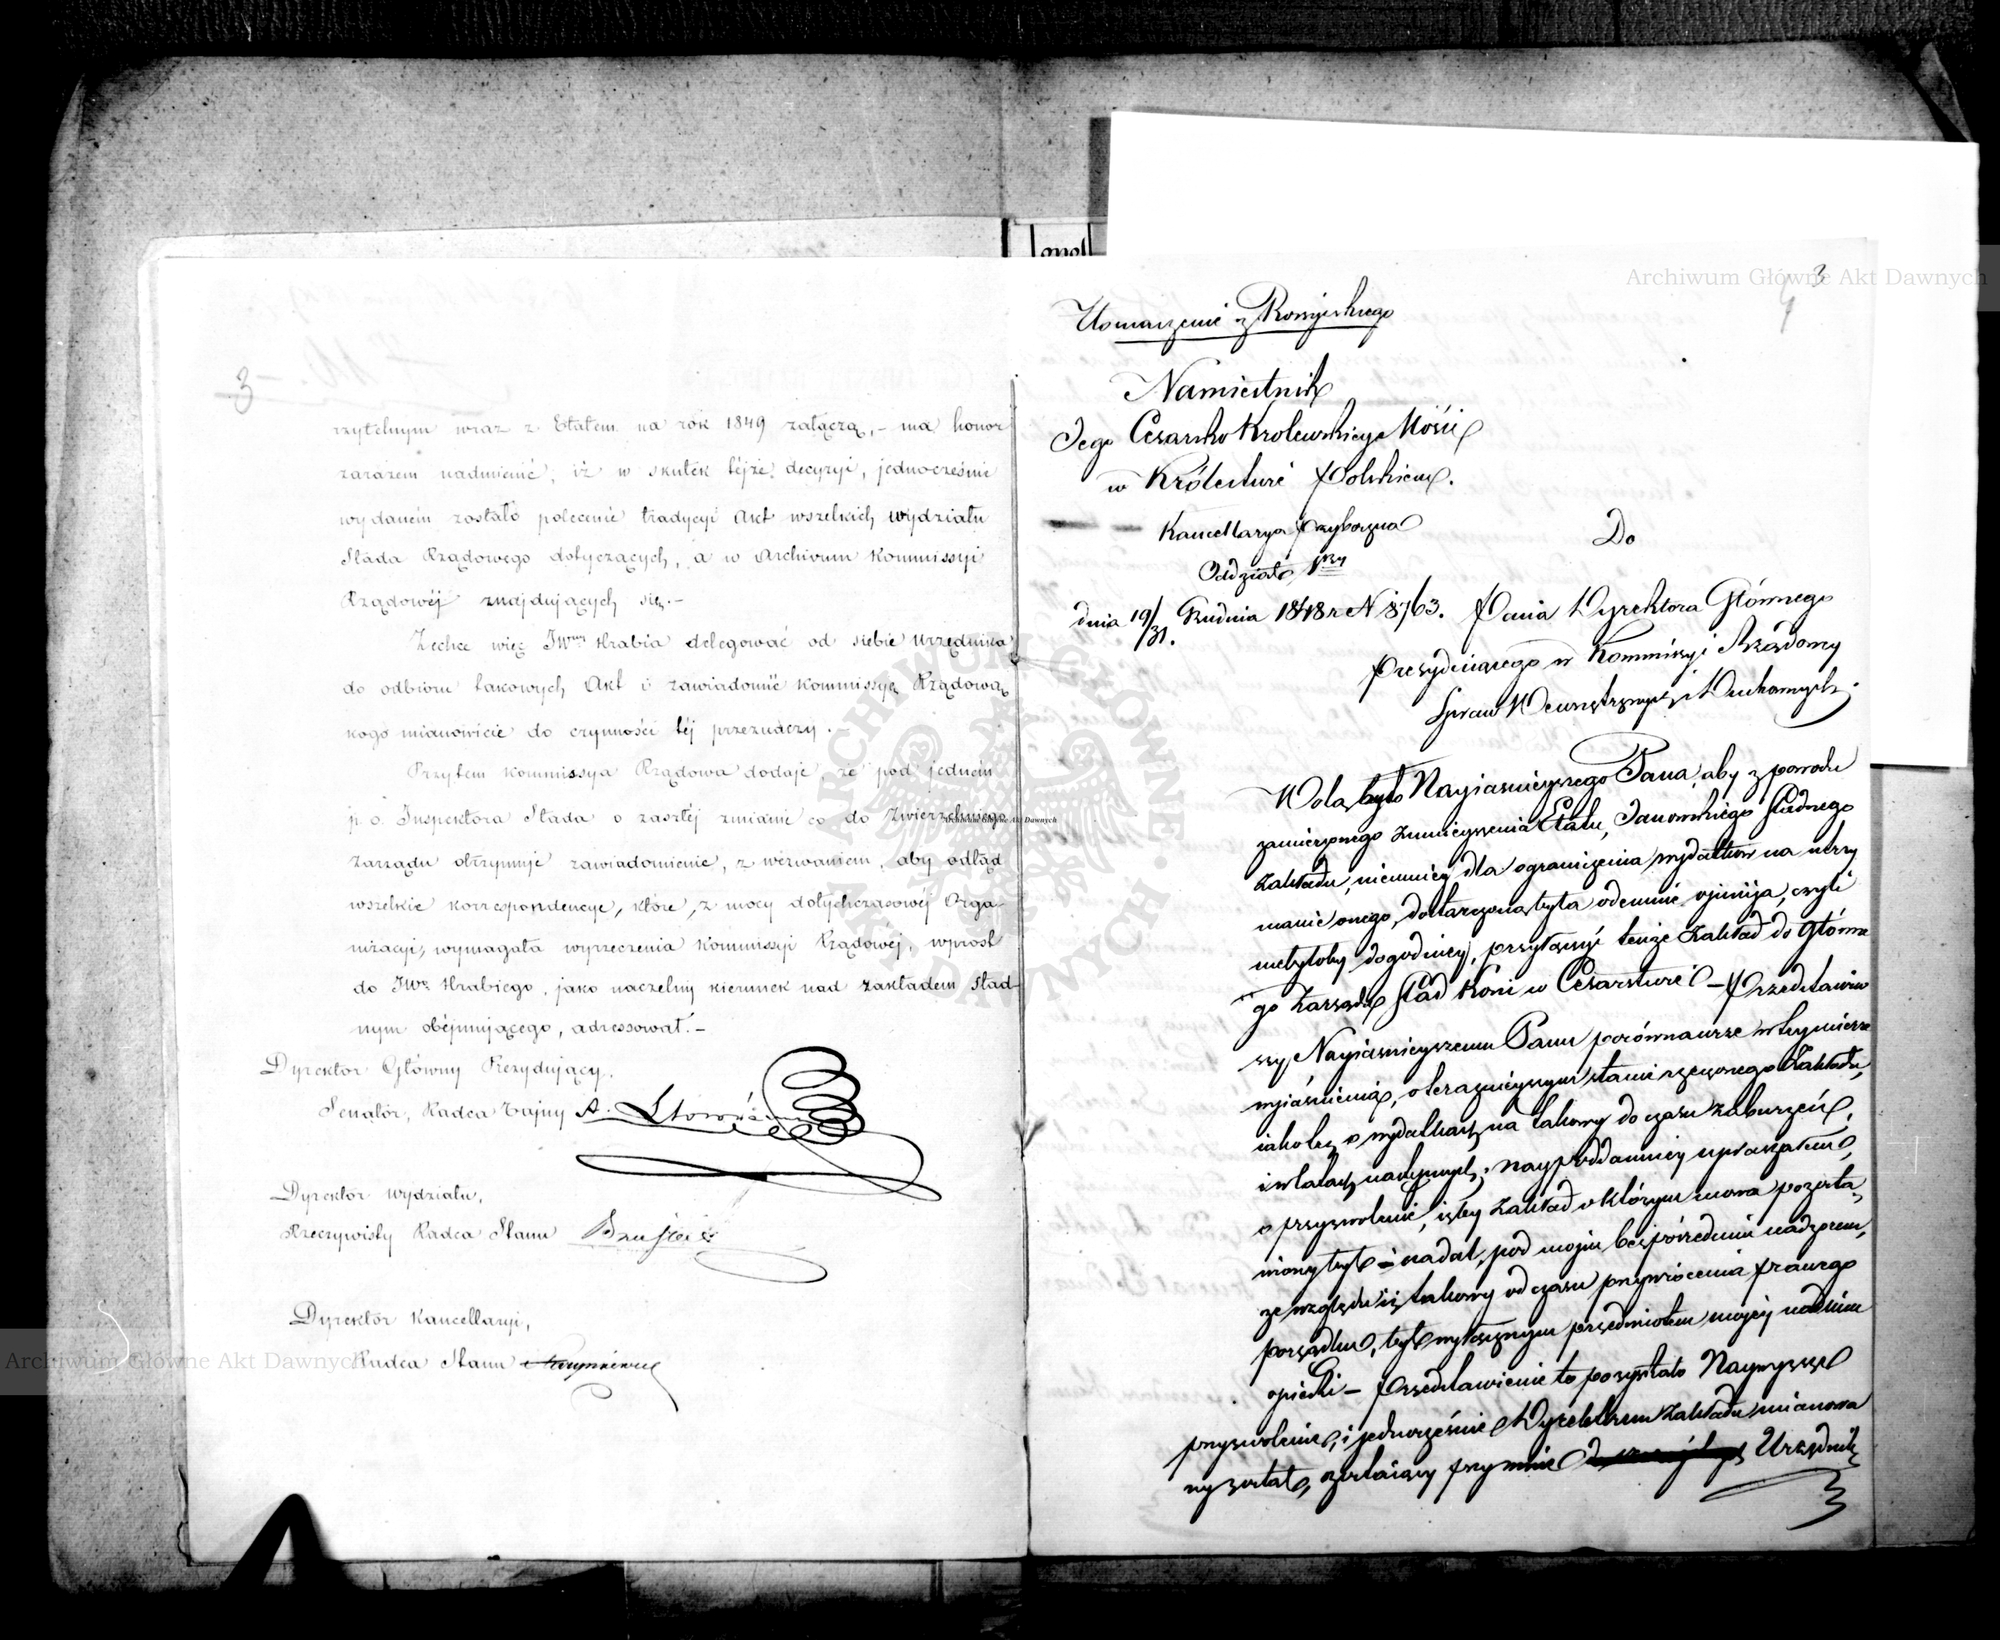 3
rzytelnym wraz z Etatem na rok 1849 załączą, – ma honor
zarazem nadmienić, iż w skutek tejże decyzyi, jednocześnie
wydaném zostało polecenie tradycyi Akt wszelkich wydziału
Stada Rządowego dotyczących, a w Archivum Kommissyi
Rządowéj znajdujących się. –
Zechce więc JWny Hrabia delegować od siebie urzędnika
do odbioru takowych Akt i zawiadomić Kommissyę Rządową
kogo mianowicie do czynności téj przeznaczy.
Przytem Kommissya Rządowa dodaje, że pod jedném
p. o. Inspektora Stada o zaszłéj zmianie co do Zwierzchniego
zarządu otrzymuje zawiadomienie, z wezwaniem, aby odtąd
wszelkie korrespondencye, które, z mocy dotychczasowéj Orga-
nizacyi, wymagała wyrzeczenia Kommissyi Rządowéj, wprost
do JWo Hrabiego, jako naczelny kierunek nad zakładem Stad-
nym obéjmującego, adressował. –
Dyrektor Główny Prezydujący.
Senatór, Radca Tajny A.
Dyrektór Wydziału,
Rzeczywisty Radca Stanu
Dyrektór Kancellaryi,
Radca Stanu
3
4
Tłomaczenie z Rossyiskiego
Namiestnik
Jego Cesarsko Krolewskiey Mości
w Królestwie Polskiem.
Kancellarya Przyboczna
Oddział 1szy
Do
dnia 19/31. Grudnia 1848 r N 8763.
Pana Dyrektora Głównego
Prezyduiącego w Kommissyi Rządowy
Spraw Wewnętrznych i Duchownych.
Wolą było Nayiaśnieyszego Pana, aby z powodu
zamierzonego zmnieyszenia Etatu, Janowskiego Stadnego
Zakładu, niemniey dla ograniczenia wydatków na utrzy
manie onego, dostarczona była odemnie opiniia, czyli
niebyłoby dogodniey, przyłączyć tenże Zakład do Główne
go Zarządu Stad Koni w Cesarstwie – Przedstawiw
szy Nayiaśnieyszemu Panu porównawsze w tey mierze
wyiaśnienia, o teraźnieyszym stanie rzeczonego Zakładu,
iakoteż o wydatkach na takowy do czasu zaburzeń,
i w latach następnych; naypoddanniey upraszałem,
o przyzwolenie, iżby Zakład o którym mowa pozosta
wiony był i nadal, pod moim bespośrednim nadzorem,
ze względu iż takowy od czasu przywrócenia prawego
porządku, był wyłącznym przedmiotem mojéy nad nim
opieki – Przedstawienie to pozyskało Naywyższe
przyzwolenie, i jednocześnie Dyrektorem Zakładu mianowa
ny został, zostaiący przy mnie Urzędnik
Archiwum Główne Akt Dawnych
Archiwum Główne Akt Dawnych
Archiwum Główne Akt Dawnych
ARCHIWUM GŁÓWNE AKT DAWNYCH